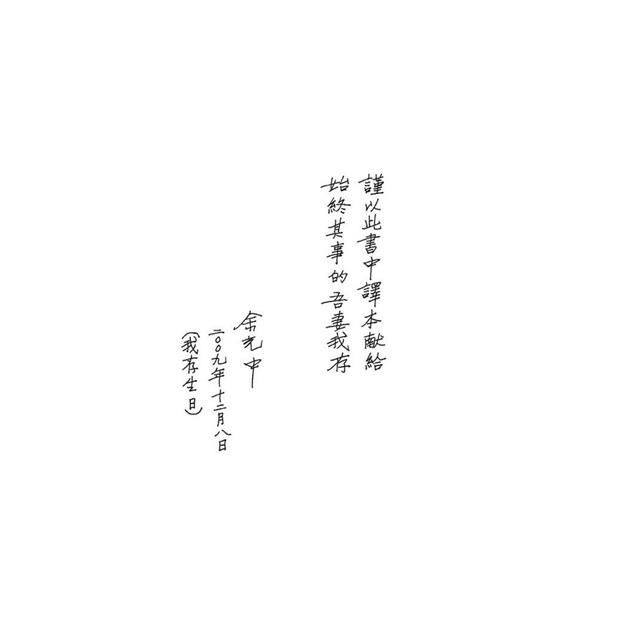 謹以此書中譯本献給
始終其事的吾妻我存
余光中
二〇〇九年十二月八日
(我存生日)